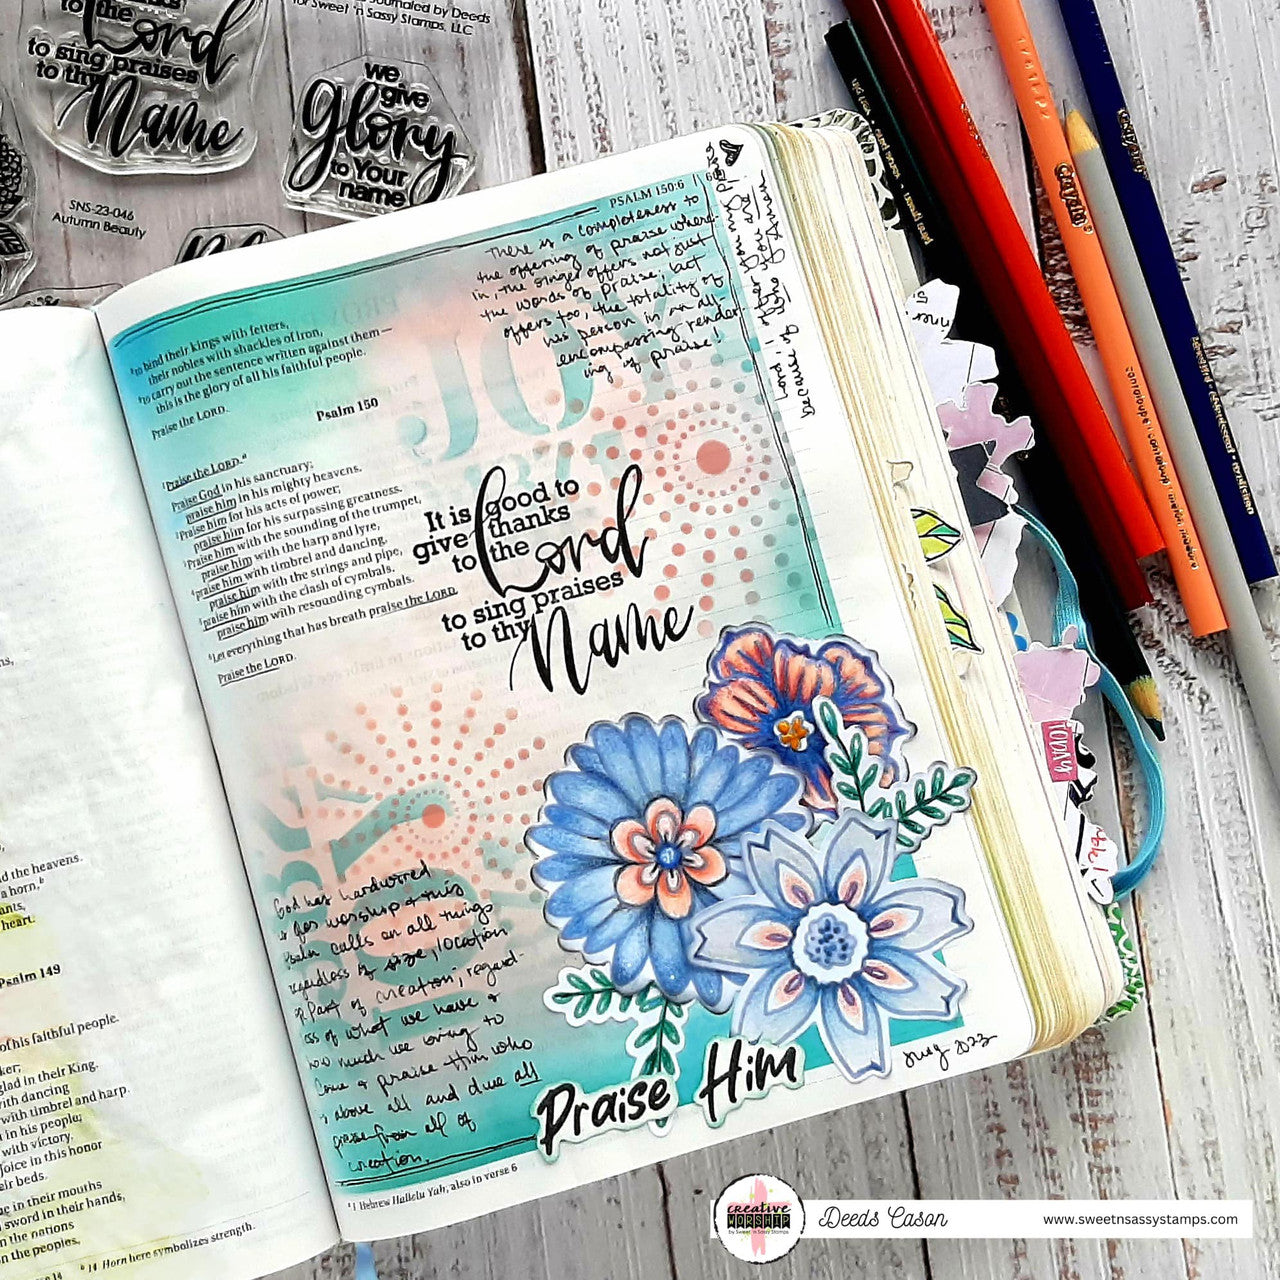 Journaled by Deeds
for Sweet 'n Sassy Stamps, LLC
thanks
to the
Lord
to sing praises
to thy
Name
we
give
glory
to Your
name
SNS-23-046
Autumn Beauty
PSALM 150:6
There is a completeness to
the offering of praise where-
in, the singer offers not just
the words of praise; but
offers too, the totality of
his person in an all-
encompassing render-
ing of praise!
because of Who You are. Amen
to bind their kings with fetters,
their nobles with shackles of iron,
to carry out the sentence written against them—
this is the glory of all his faithful people.
Praise the LORD.
Psalm 150
1 Praise the LORD.a
Praise God in his sanctuary;
praise him in his mighty heavens.
2 Praise him for his acts of power;
praise him for his surpassing greatness.
3 Praise him with the sounding of the trumpet,
praise him with the harp and lyre,
4 praise him with timbrel and dancing,
praise him with the strings and pipe,
5 praise him with the clash of cymbals,
praise him with resounding cymbals.
6 Let everything that has breath praise the LORD.
Praise the LORD.
JOY
It is good to
give thanks
to the Lord
to sing praises
to thy Name
God has hardwired
us for worship & this
Psalm calls on all things
regardless of size, location
or part of creation; regard-
less of what we have &
how much we bring to
come & praise Him who
is above all and due all
praise from all of
creation.
Praise Him
Aug 2023
a 1 Hebrew Hallelu Yah; also in verse 6
d the heavens.
a horn,b
heart.
Psalm 149
of his faithful people.
glad in their King.
with dancing
with timbrel and harp.
in his people;
with victory.
joice in this honor
eir beds.
in their mouths
sword in their hands,
n the nations
n the peoples,
b 14 Horn here symbolizes strength.
TODAY
Crayola
creative
WORSHIP
by Sweet 'n Sassy Stamps
Deeds Cason
www.sweetnsassystamps.com